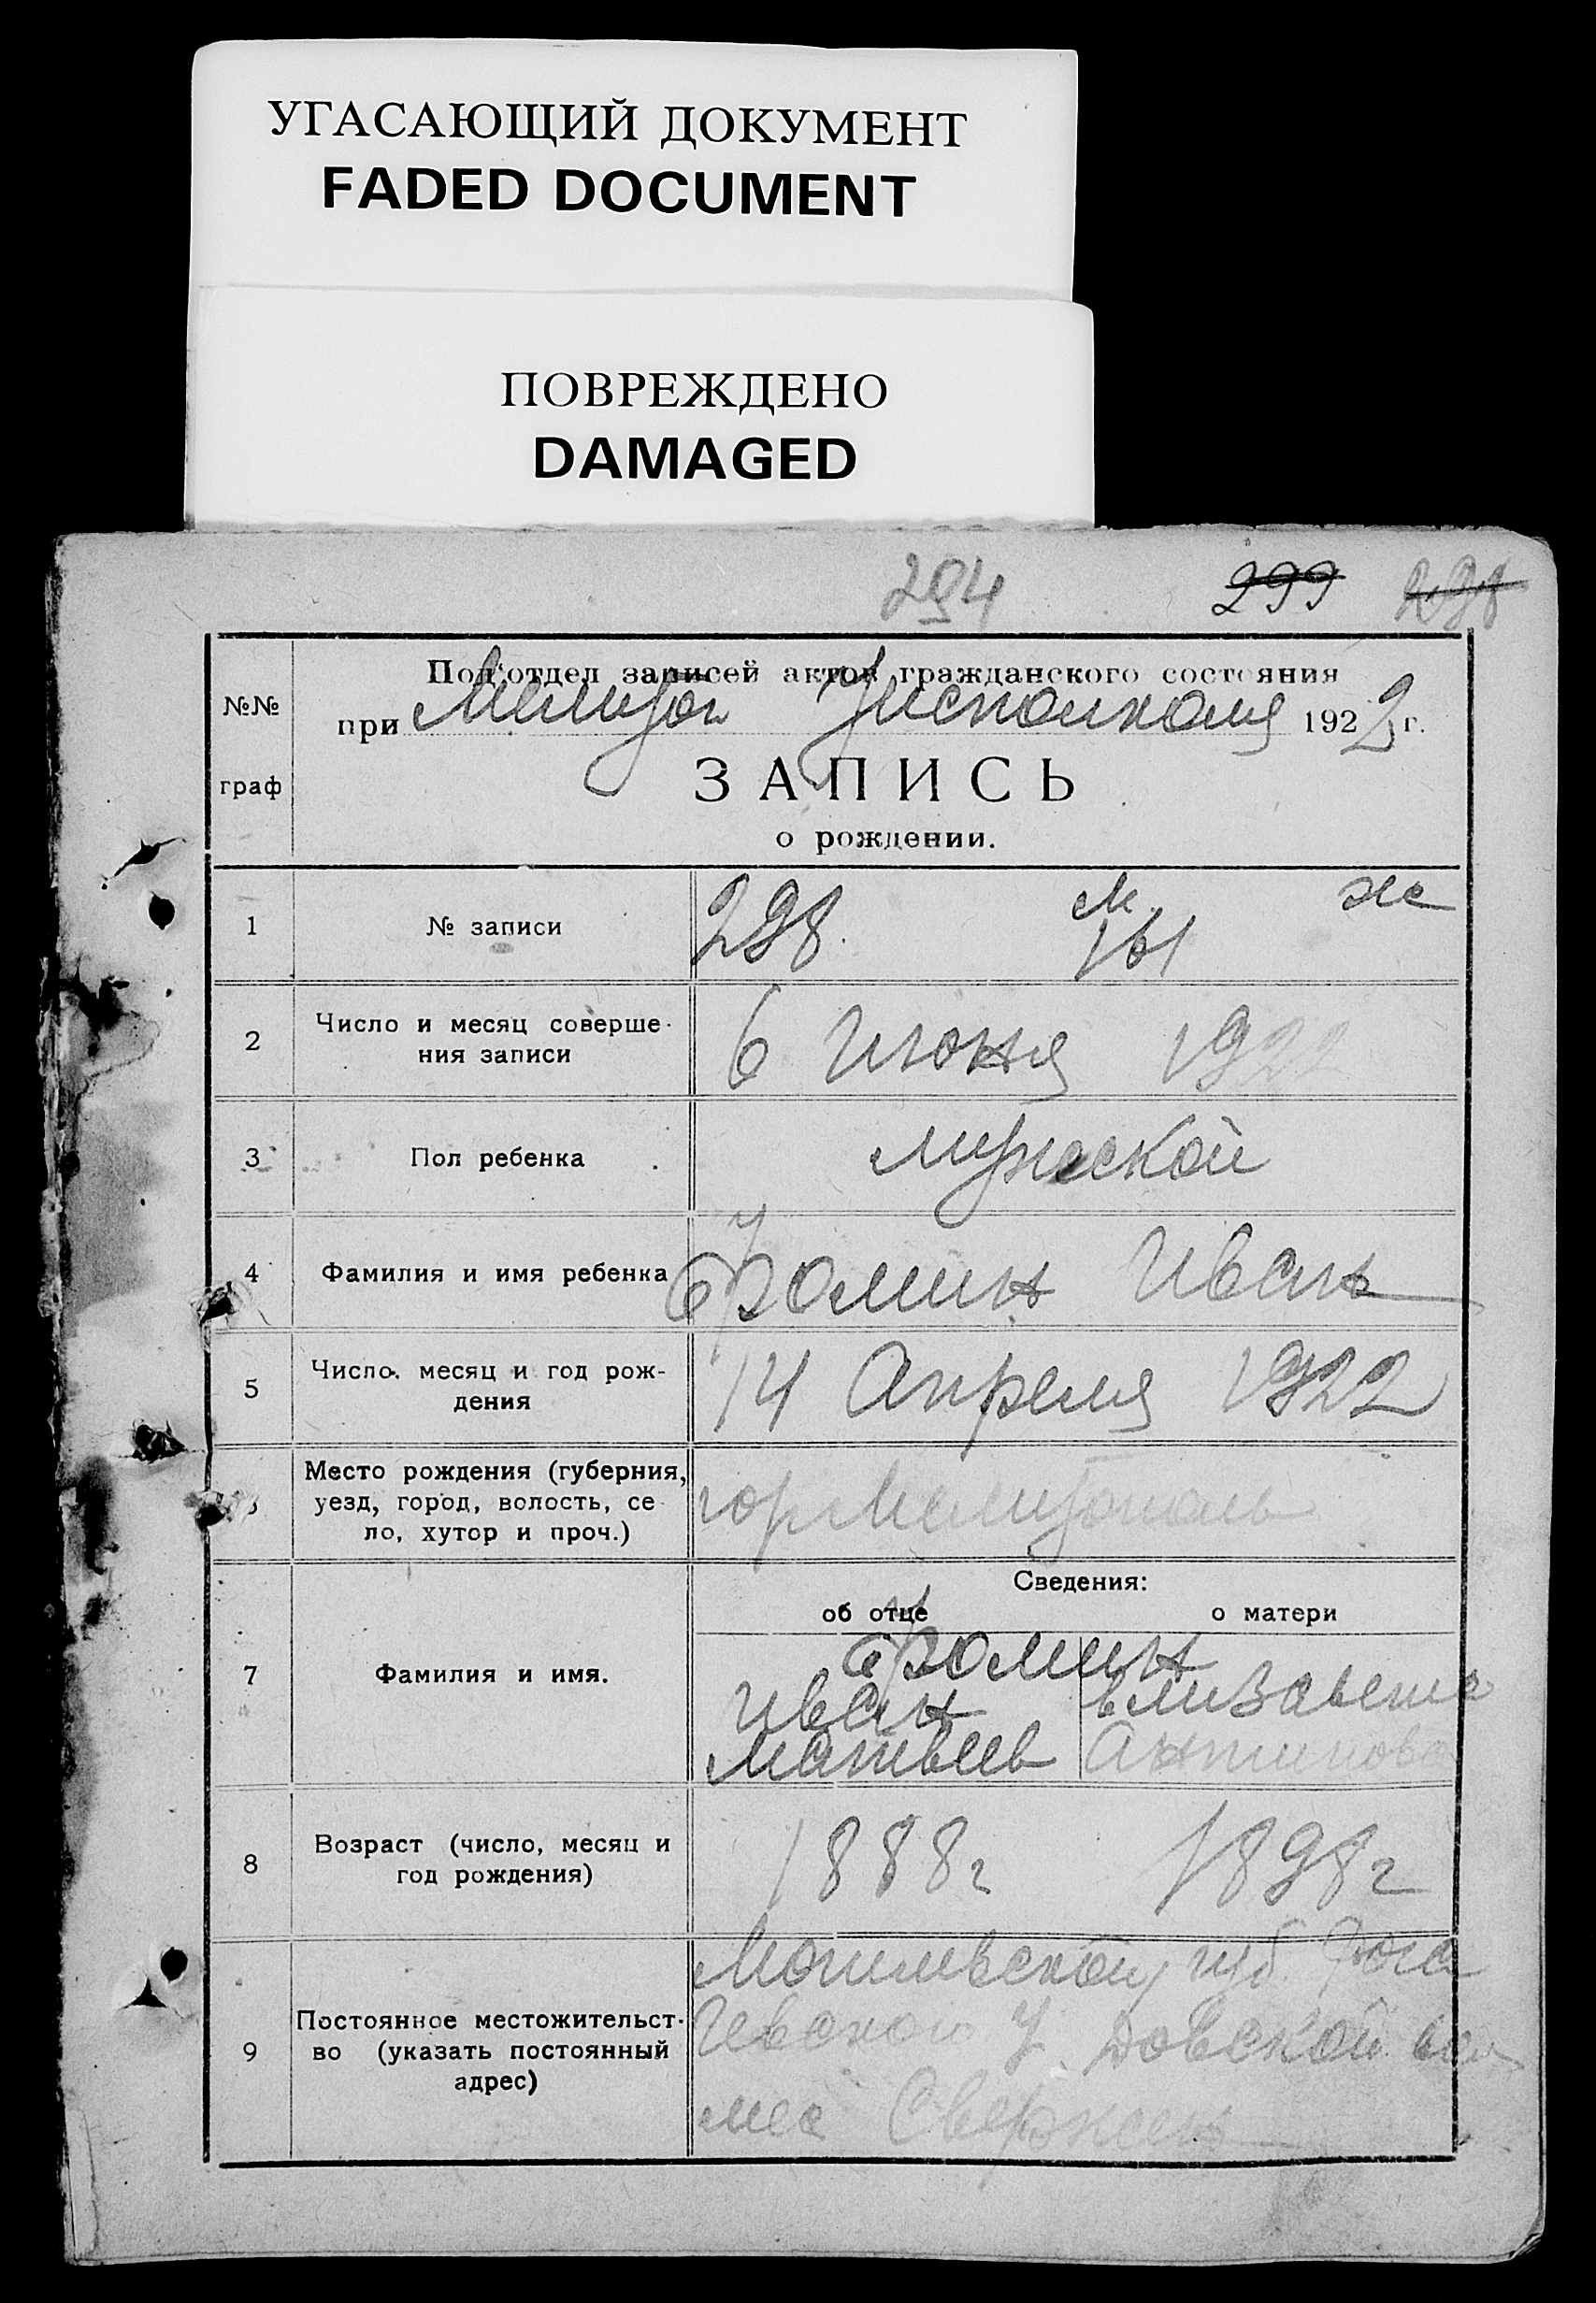 УГАСАЮЩИЙ ДОКУМЕНТ
FADED DOCUMENT
ПОВРЕЖДЕНО
DAMAGED
294 299 298
№№ граф
Под'отдел записей актов гражданского состояния
при Мелитоп Уисполкома 1922 г.
ЗАПИСЬ
о рождении.
1 № записи 298. м. 161 ж
2 Число и месяц соверше-
ния записи 6 Июня 1922
3 Пол ребенка мужской
4 Фамилия и имя ребенка Фромин Иван
5 Число, месяц и год рож-
дения 14 Апреля 1922
Место рождения (губерния,
уезд, город, волость, се
ло, хутор и проч.) гор Мелитополь
Сведения:
об отце о матери
7 Фамилия и имя. Фромин
Иван Елизавета
Матвеев Антипова
8 Возраст (число, месяц и
год рождения) 1888г 1898г
9 Постоянное местожительст-
во (указать постоянный
адрес)
Могилевской губ. Рога
чевского У. Довской вол
мес Свержень